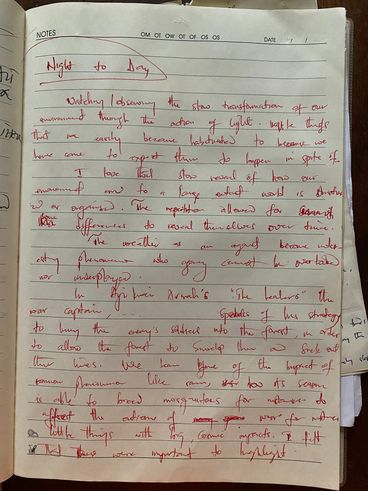 NOTES
DATE / /
Night to Day
Watching / observing the slow transformation of our
environment through the action of light. little things
that we easily become habituated to because we
have come to expect them to happen in spite of
I love that slow reveal of how our
environment and to a large extent world is
or organised. The repetition allowed for
differences to reveal themselves over time.
The weather as an agent become
phenomenon who agency cannot be
nor underplayed.
In Ayi Kwei Armah's "The healers" the
war captain, ... speaks of his strategy
to bring the enemy's soldiers into the forest, in order
to allow the forest to swallow them and
their lives. We learn of the impact of
phenomena like rain, how its season
is able to breed mosquitoes for
affect the outcome of war for
little things with big, cosmic impacts. I felt
that these were important to highlight.